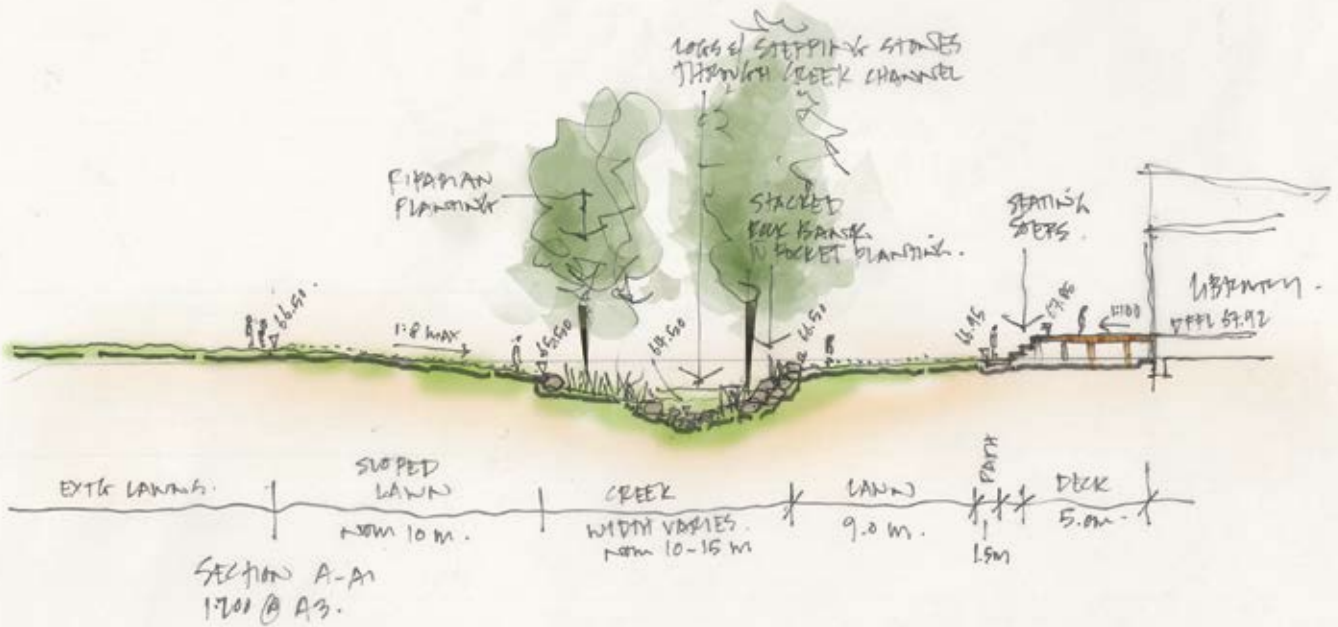 LOGS & STEPPING STONES
THROUGH CREEK CHANNEL
RIPARIAN
PLANTING
STACKED
ROCK BANK
W POCKET PLANTING.
SEATING
STEPS.
LIBRARY.
66.50.
1:8 MAX
65.50
64.50
66.50
66.95
67.85
1:100
FFL 67.92
EXTG LAWNS.
SLOPED
LAWN
NOM 10 M.
CREEK
WIDTH VARIES.
NOM 10-15 M
LAWN
9.0 M.
PATH
1.5M
DECK
5.0M.
SECTION A-A1
1:200 @ A3.